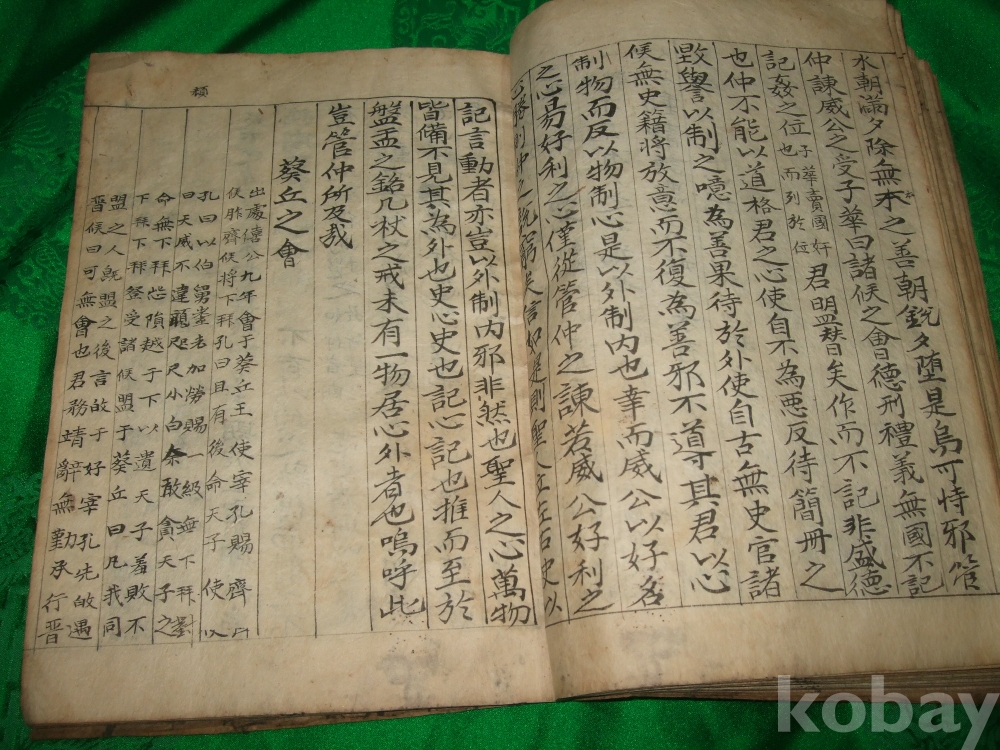 水朝滿夕除無本之善朝銳夕墮是烏可恃邪管
仲諫威公之受子華曰諸侯之會德刑禮義無國不記
記姦之位也子華賣國奸而列於位君盟替矣作而不記非盛德
也仲不能以道格君之心使自不為惡反待簡冊之
毀譽以制之噫為善果待於外使自古無史官諸
侯無史籍將放意而不復為善邪不導其君以心
制物而反以物制心是以外制內也幸而威公以好名
之心易好利之心僅從管仲之諫若威公好利之
記言動者亦豈以外制內邪非然也聖人之心萬物
皆備不見其為外也史心史也記心記也推而至於
盤盂之銘几杖之戒未有一物居心外者也嗚呼此
豈管仲所及哉
葵丘之會
出處僖公九年會于葵丘王使宰孔賜齊
侯胙齊侯將下拜孔曰且有後命天子使
孔曰以伯舅耋老加勞賜一級無下拜對
曰天威不違顏咫尺小白余敢貪天子之
命無下拜恐隕越于下以遺天子羞敢不
下拜下拜登受諸侯盟于葵丘曰凡我同
盟之人旣盟之後言故于好宰孔先故遇
晉侯曰可無會也君務靖辭無勤承行晉
類
kobay